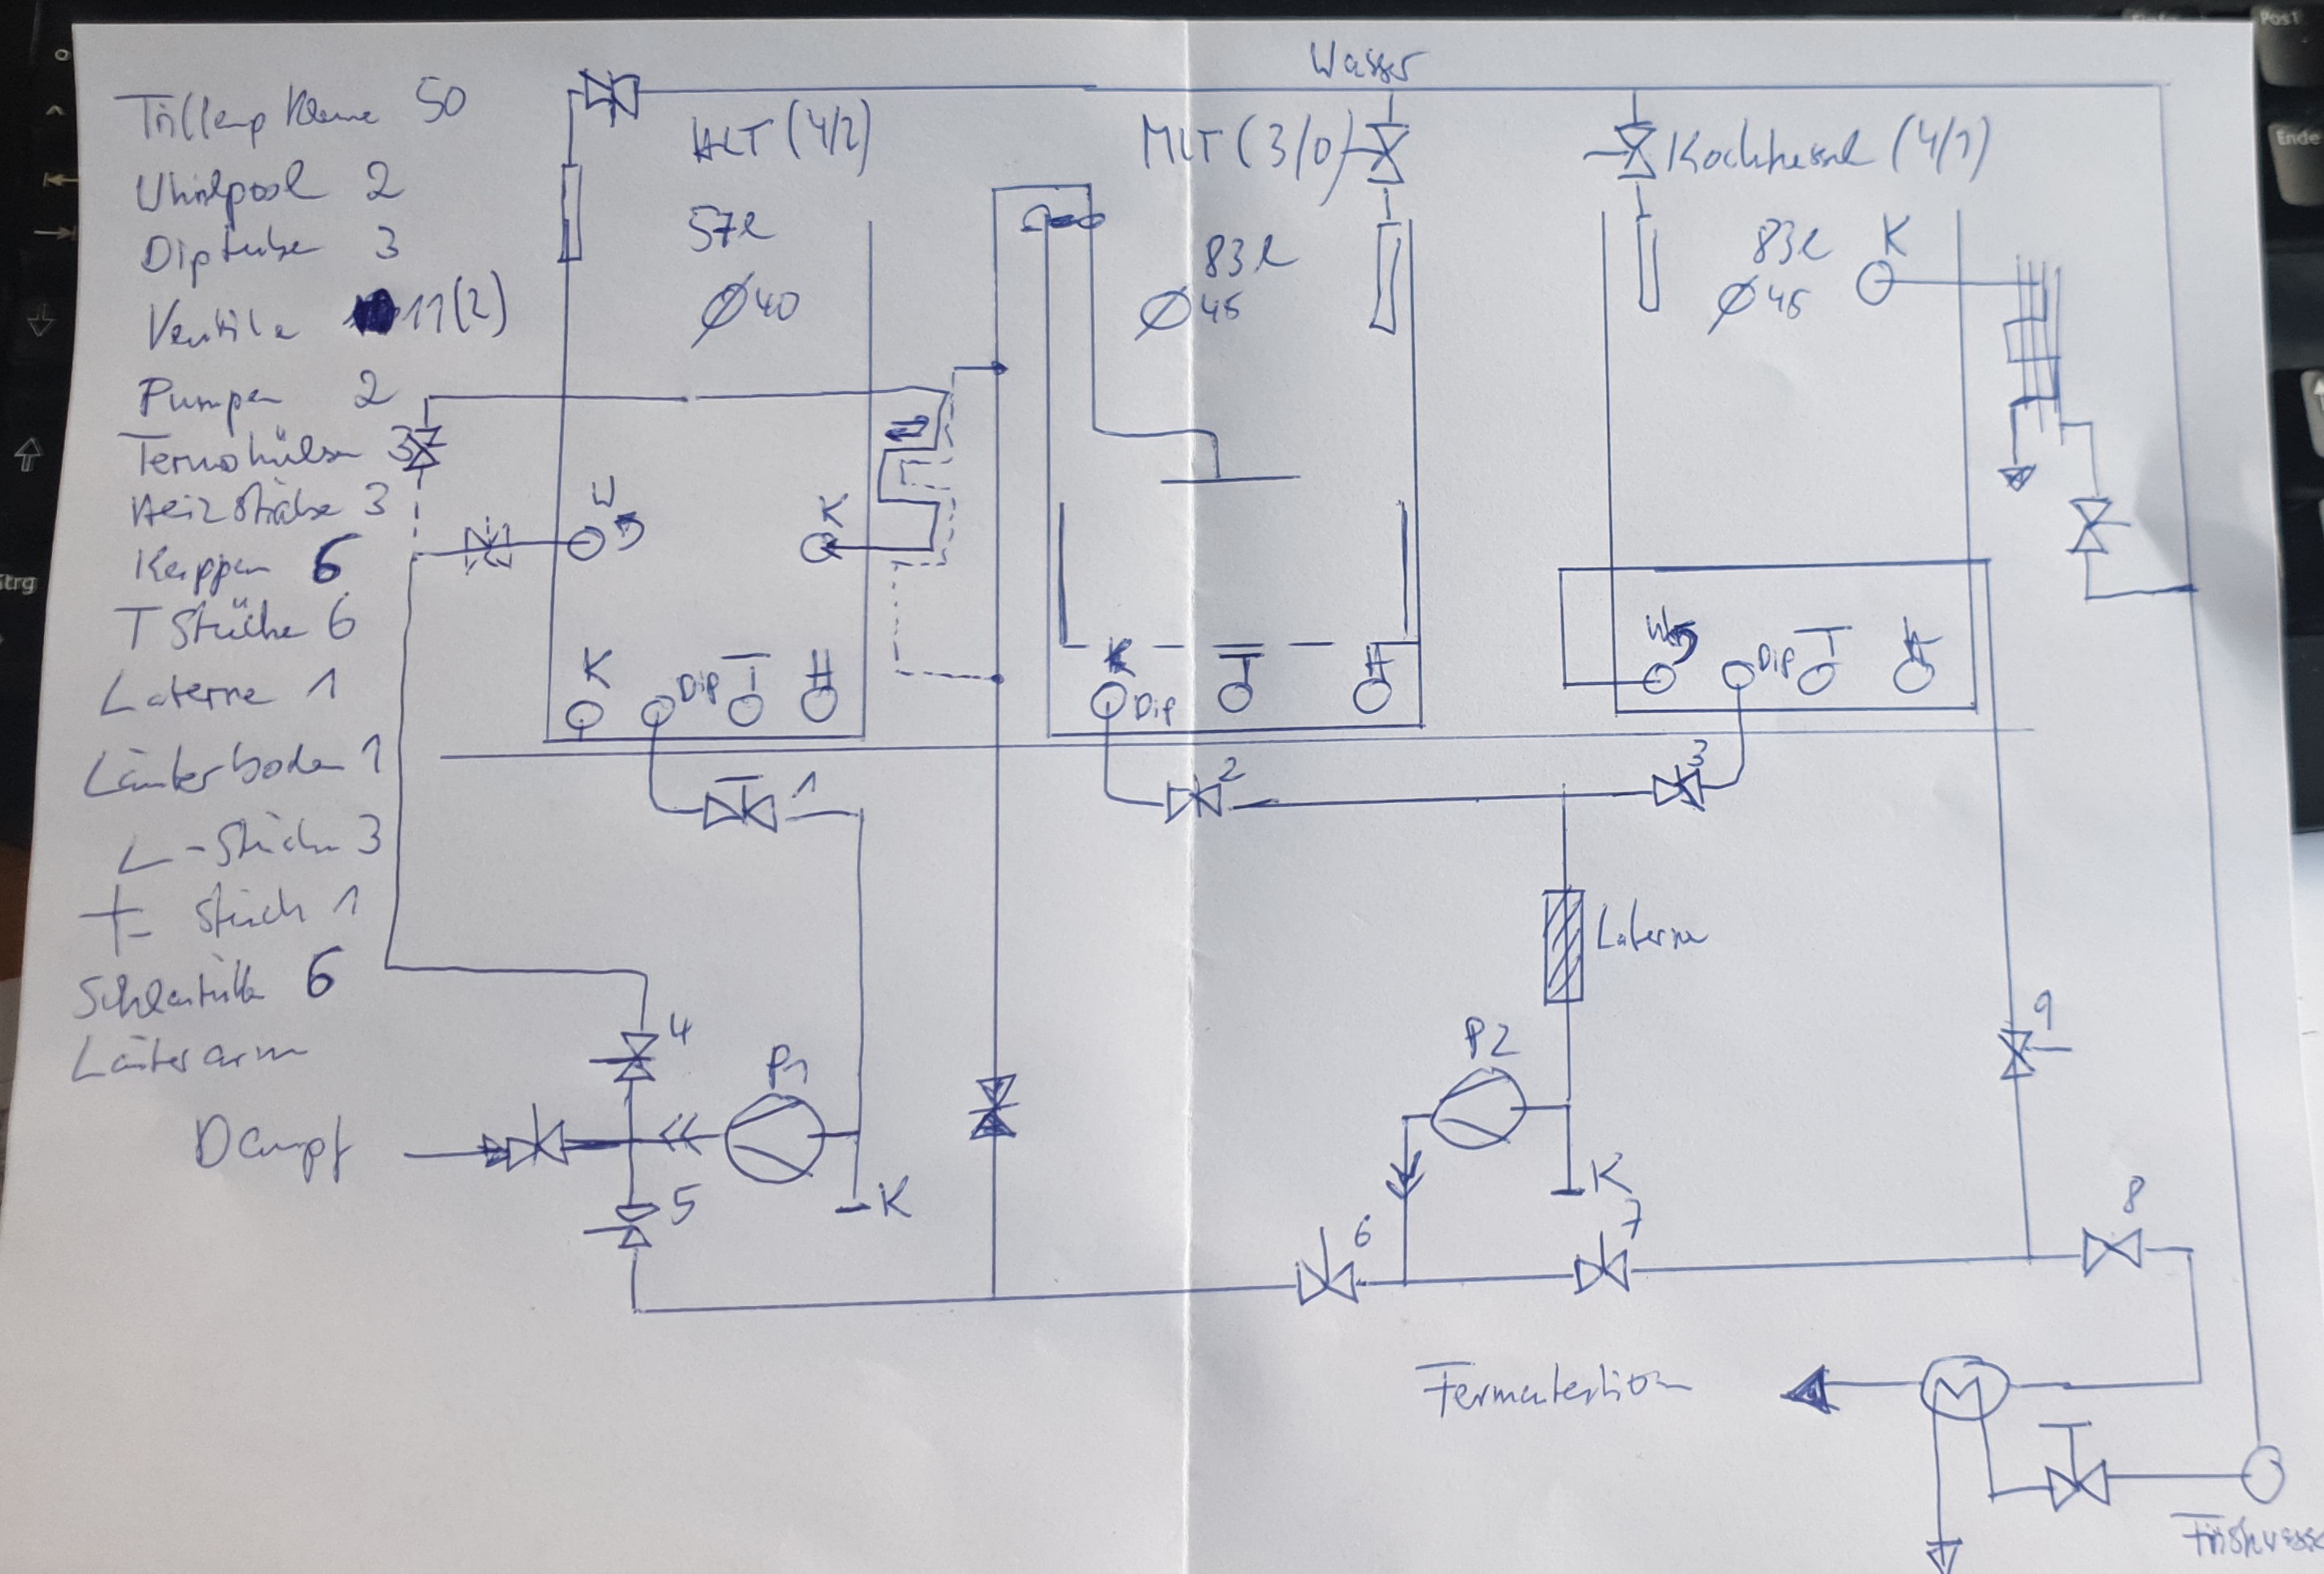 Wasser
Triclamp Klame 50
HLT (4/2)
MLT (3/0)
Kochkessel (4/1)
Whirlpool 2
57l
83l
83l
K
Diptube 3
Ø 40
Ø 45
Ø 45
Ventile 11(2)
Pumpen 2
Termohülsen 3
Heizstäbe 3
W
K
Kappen 6
T Stücke 6
K
Dip
T
H
K
Dip
T
H
W
Dip
T
H
Laterne 1
Läuterboden 1
1
2
3
L-Stücke 3
+ Stück 1
Laterne
Schlauchtülle 6
Läuterarm
4
P1
P2
9
Dampf
5
K
K
6
7
8
Fermentation